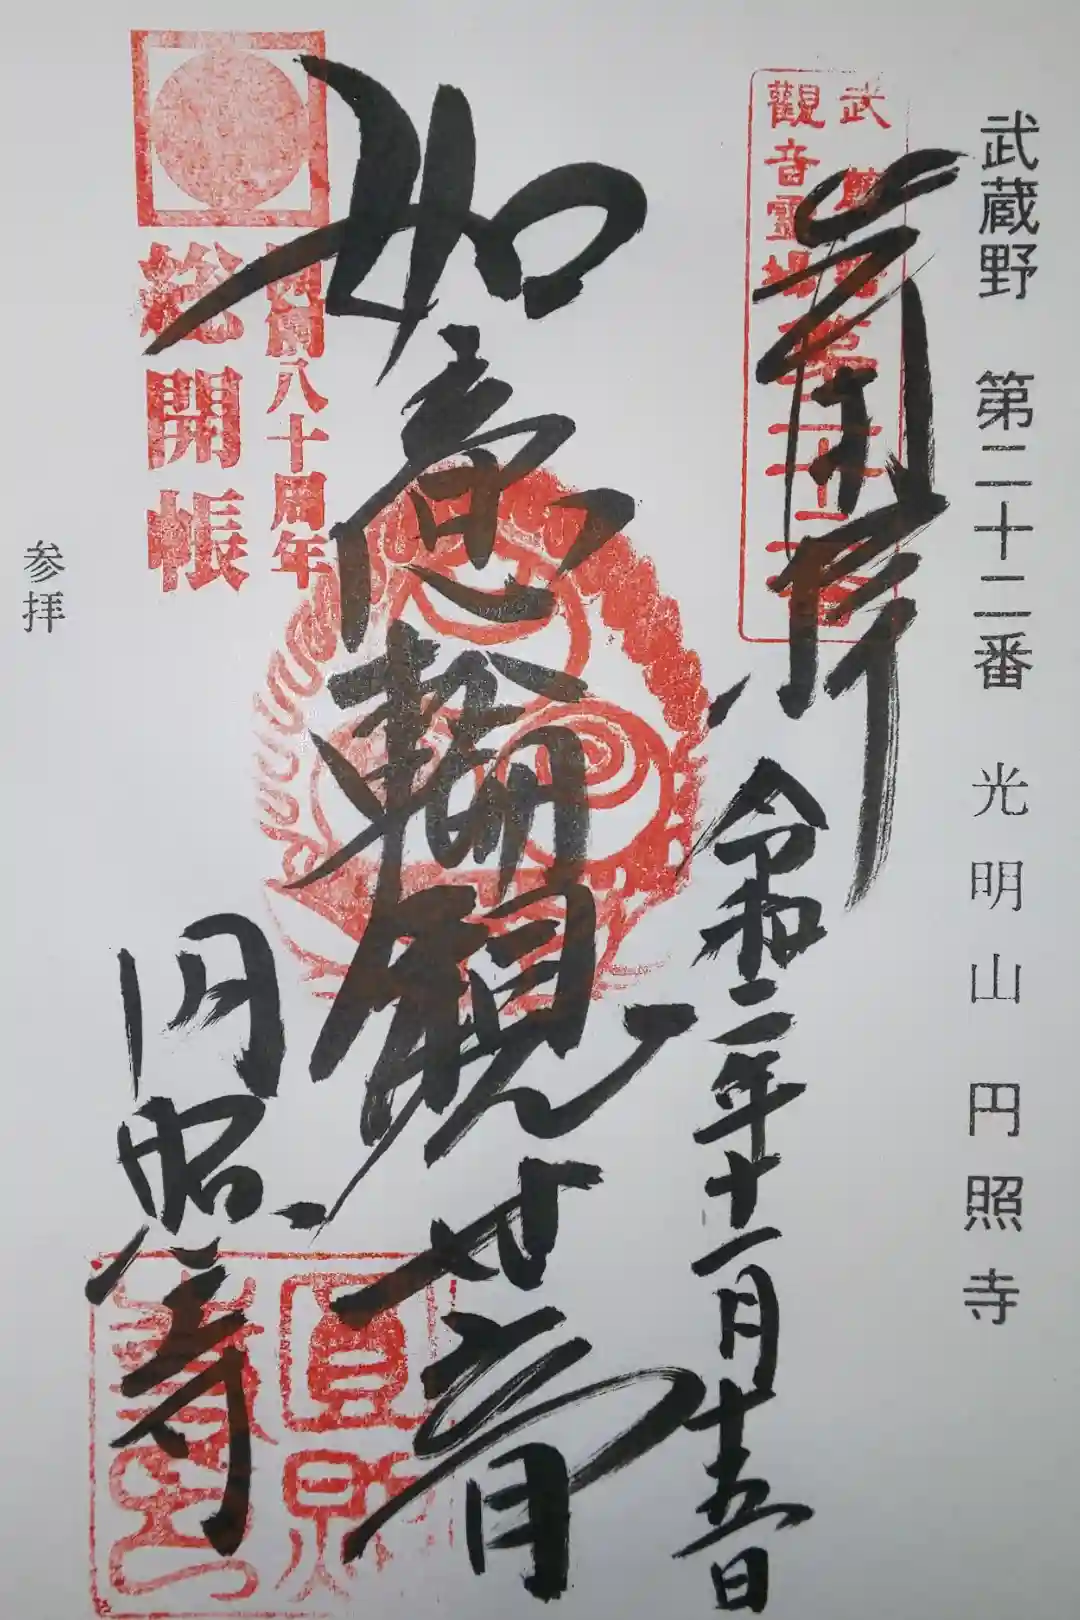 武蔵野 第二十二番 光明山 円照寺
武蔵野第二十二番
觀音靈場
奉拝
令和二年十一月十五日
如意輪観世音
円照寺
開創八十周年
総開帳
参拝